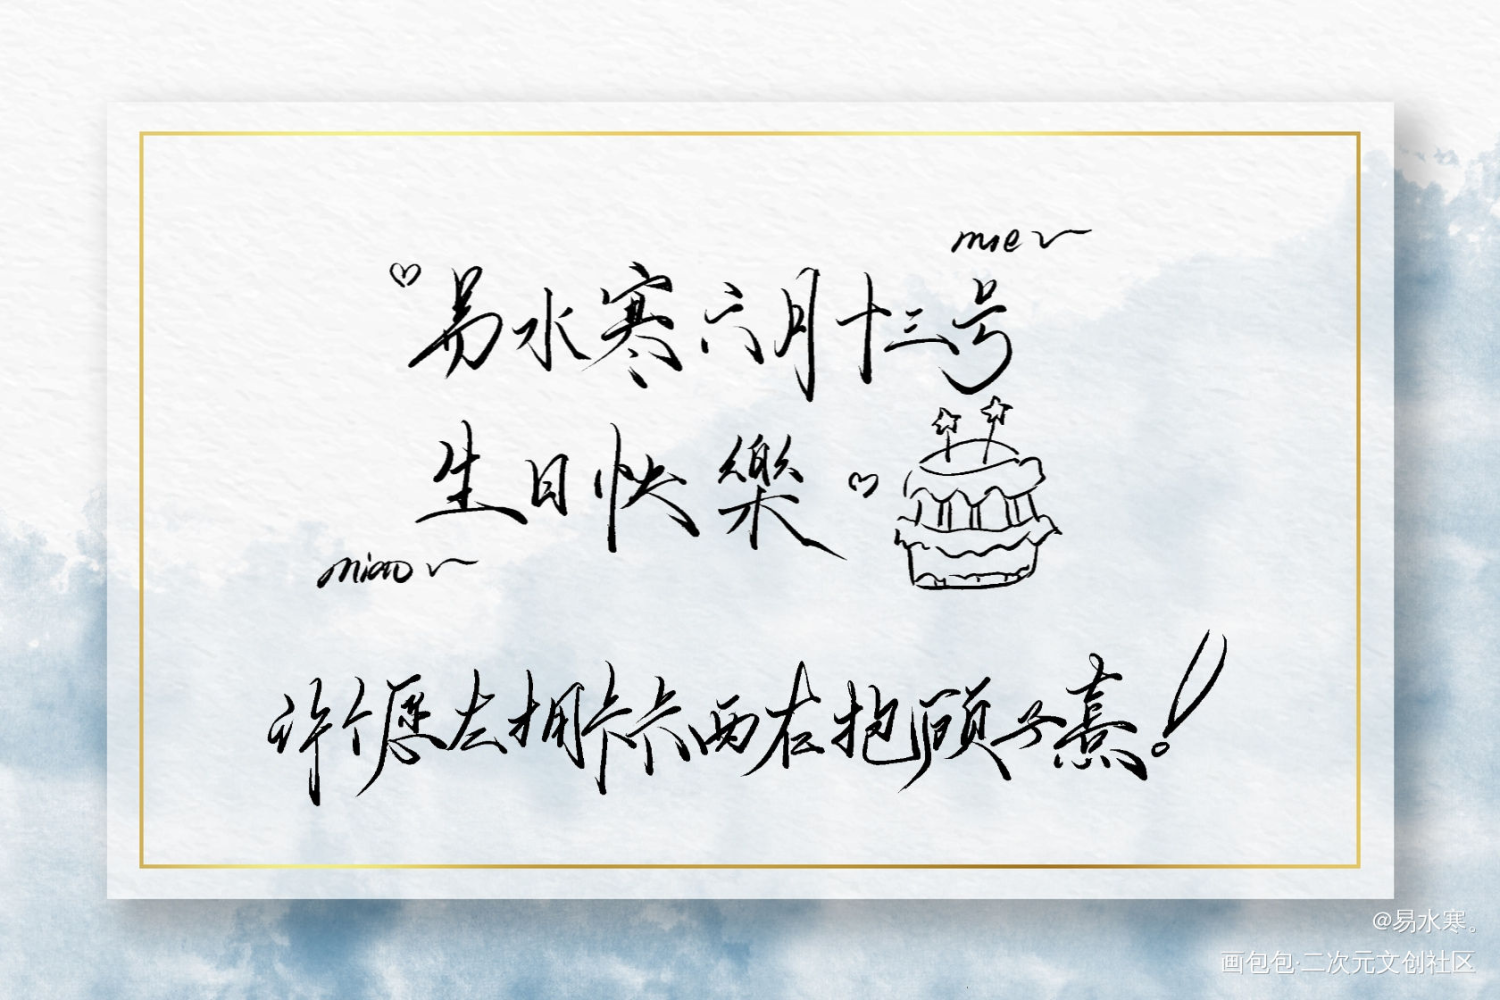 mie~
易水寒六月十三号
生日快樂
miao~
许个愿左拥卡卡西右抱顾子熹!
@易水寒。
画包包·二次元文创社区